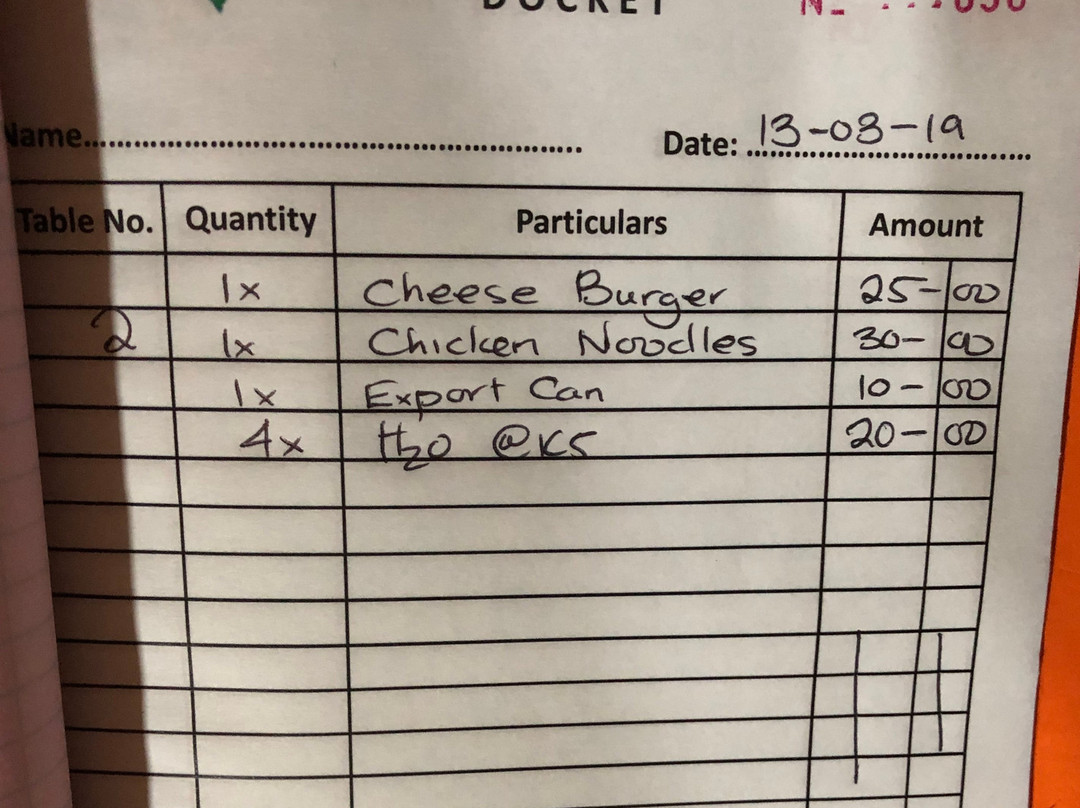 DOCKET
Name
Date: 13-08-19
Table No. Quantity Particulars Amount
1x Cheese Burger 25-00
2 1x Chicken Noodles 30-00
1x Export Can 10-00
4x H2O @K5 20-00